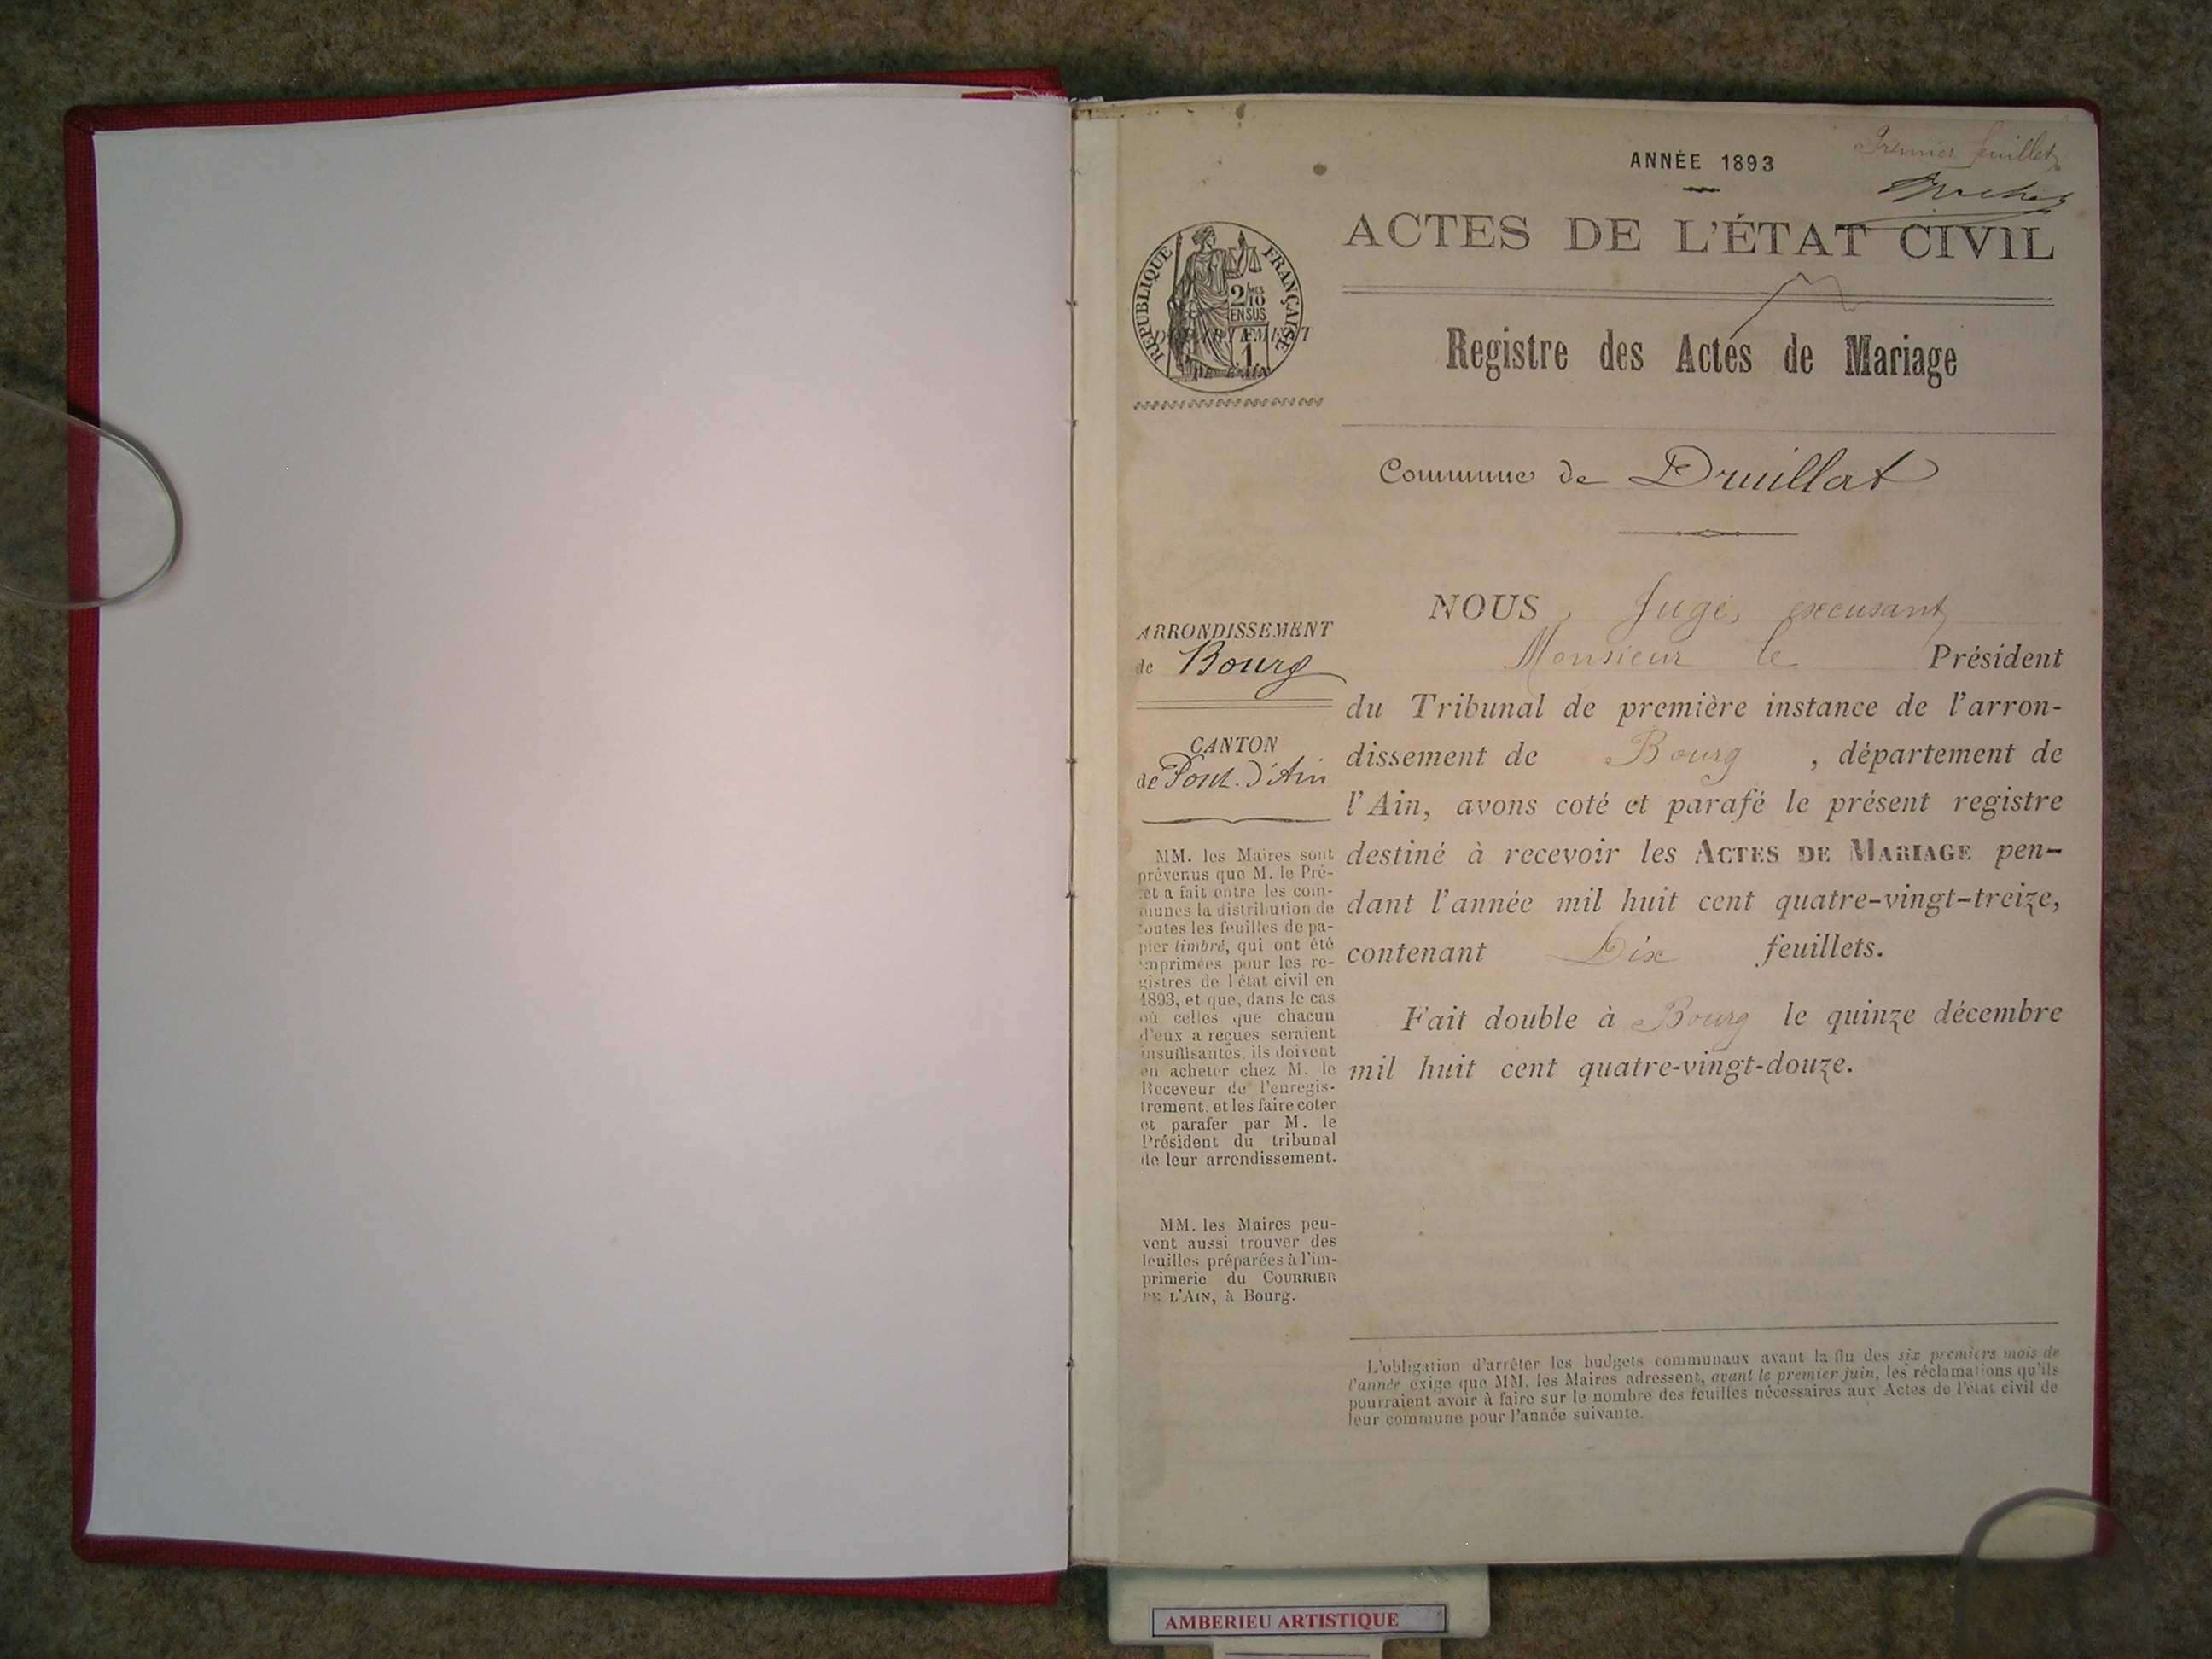 Premier feuillet
ANNÉE 1893
ACTES DE L'ÉTAT CIVIL
RÉPUBLIQUE FRANÇAISE
2/10 MES
EN SUS
DÉPARTEMENT
1.
DE L'AIN
Registre des Actes de Mariage
Commune de Druillat
ARRONDISSEMENT
de Bourg
CANTON
de Pont-d'Ain
MM. les Maires sont
prévenus que M. le Pré-
et a fait entre les com-
munes la distribution de
toutes les feuilles de pa-
pier timbré, qui ont été
imprimées pour les re-
gistres de l'état civil en
1893, et que, dans le cas
où celles que chacun
d'eux a reçues seraient
insuffisantes, ils doivent
en acheter chez M. le
Receveur de l'enregis-
trement, et les faire coter
et parafer par M. le
Président du tribunal
de leur arrondissement.
MM. les Maires peu-
vent aussi trouver des
feuilles préparées à l'im-
primerie du COURRIER
DE L'AIN, à Bourg.
NOUS, Juge, excusant
Monsieur le Président
du Tribunal de première instance de l'arron-
dissement de Bourg, département de
l'Ain, avons coté et parafé le présent registre
destiné à recevoir les ACTES DE MARIAGE pen-
dant l'année mil huit cent quatre-vingt-treize,
contenant Dix feuillets.
Fait double à Bourg le quinze décembre
mil huit cent quatre-vingt-douze.
L'obligation d'arrêter les budgets communaux avant la fin des six premiers mois de
l'année exige que MM. les Maires adressent, avant le premier juin, les réclamations qu'ils
pourraient avoir à faire sur le nombre des feuilles nécessaires aux Actes de l'état civil de
leur commune pour l'année suivante.
AMBERIEU ARTISTIQUE